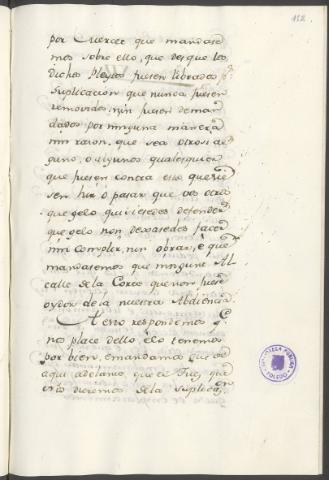 152
por Merced que mandase
mos sobre ello, que desque los
dichos Pleytos fuesen librados pr.
Suplicacion que nunca fuesen
removidos, nin fuesen deman
dados por ninguna manera
nin razon, que sea otrosi al
guno, o algunos qualesquier
que fuesen contra esto quisie
sen hir, o pasar que vos otros
que gelo quisiesedes defender
que gelo non dexasedes facer
nin complir, nin obrar, è que
mandasemos que ningunt Al
calle de la Corte que non fuese
oydor de la nuestra Abdiencia.
A esto respondemos q.e
nos place dello, è lo tenemos
por bien, è mandamos que de
aqui adelante, que el Juez que
nos dieremos de la suplicaon
BIBLIOTECA PUBLICA
TOLEDO